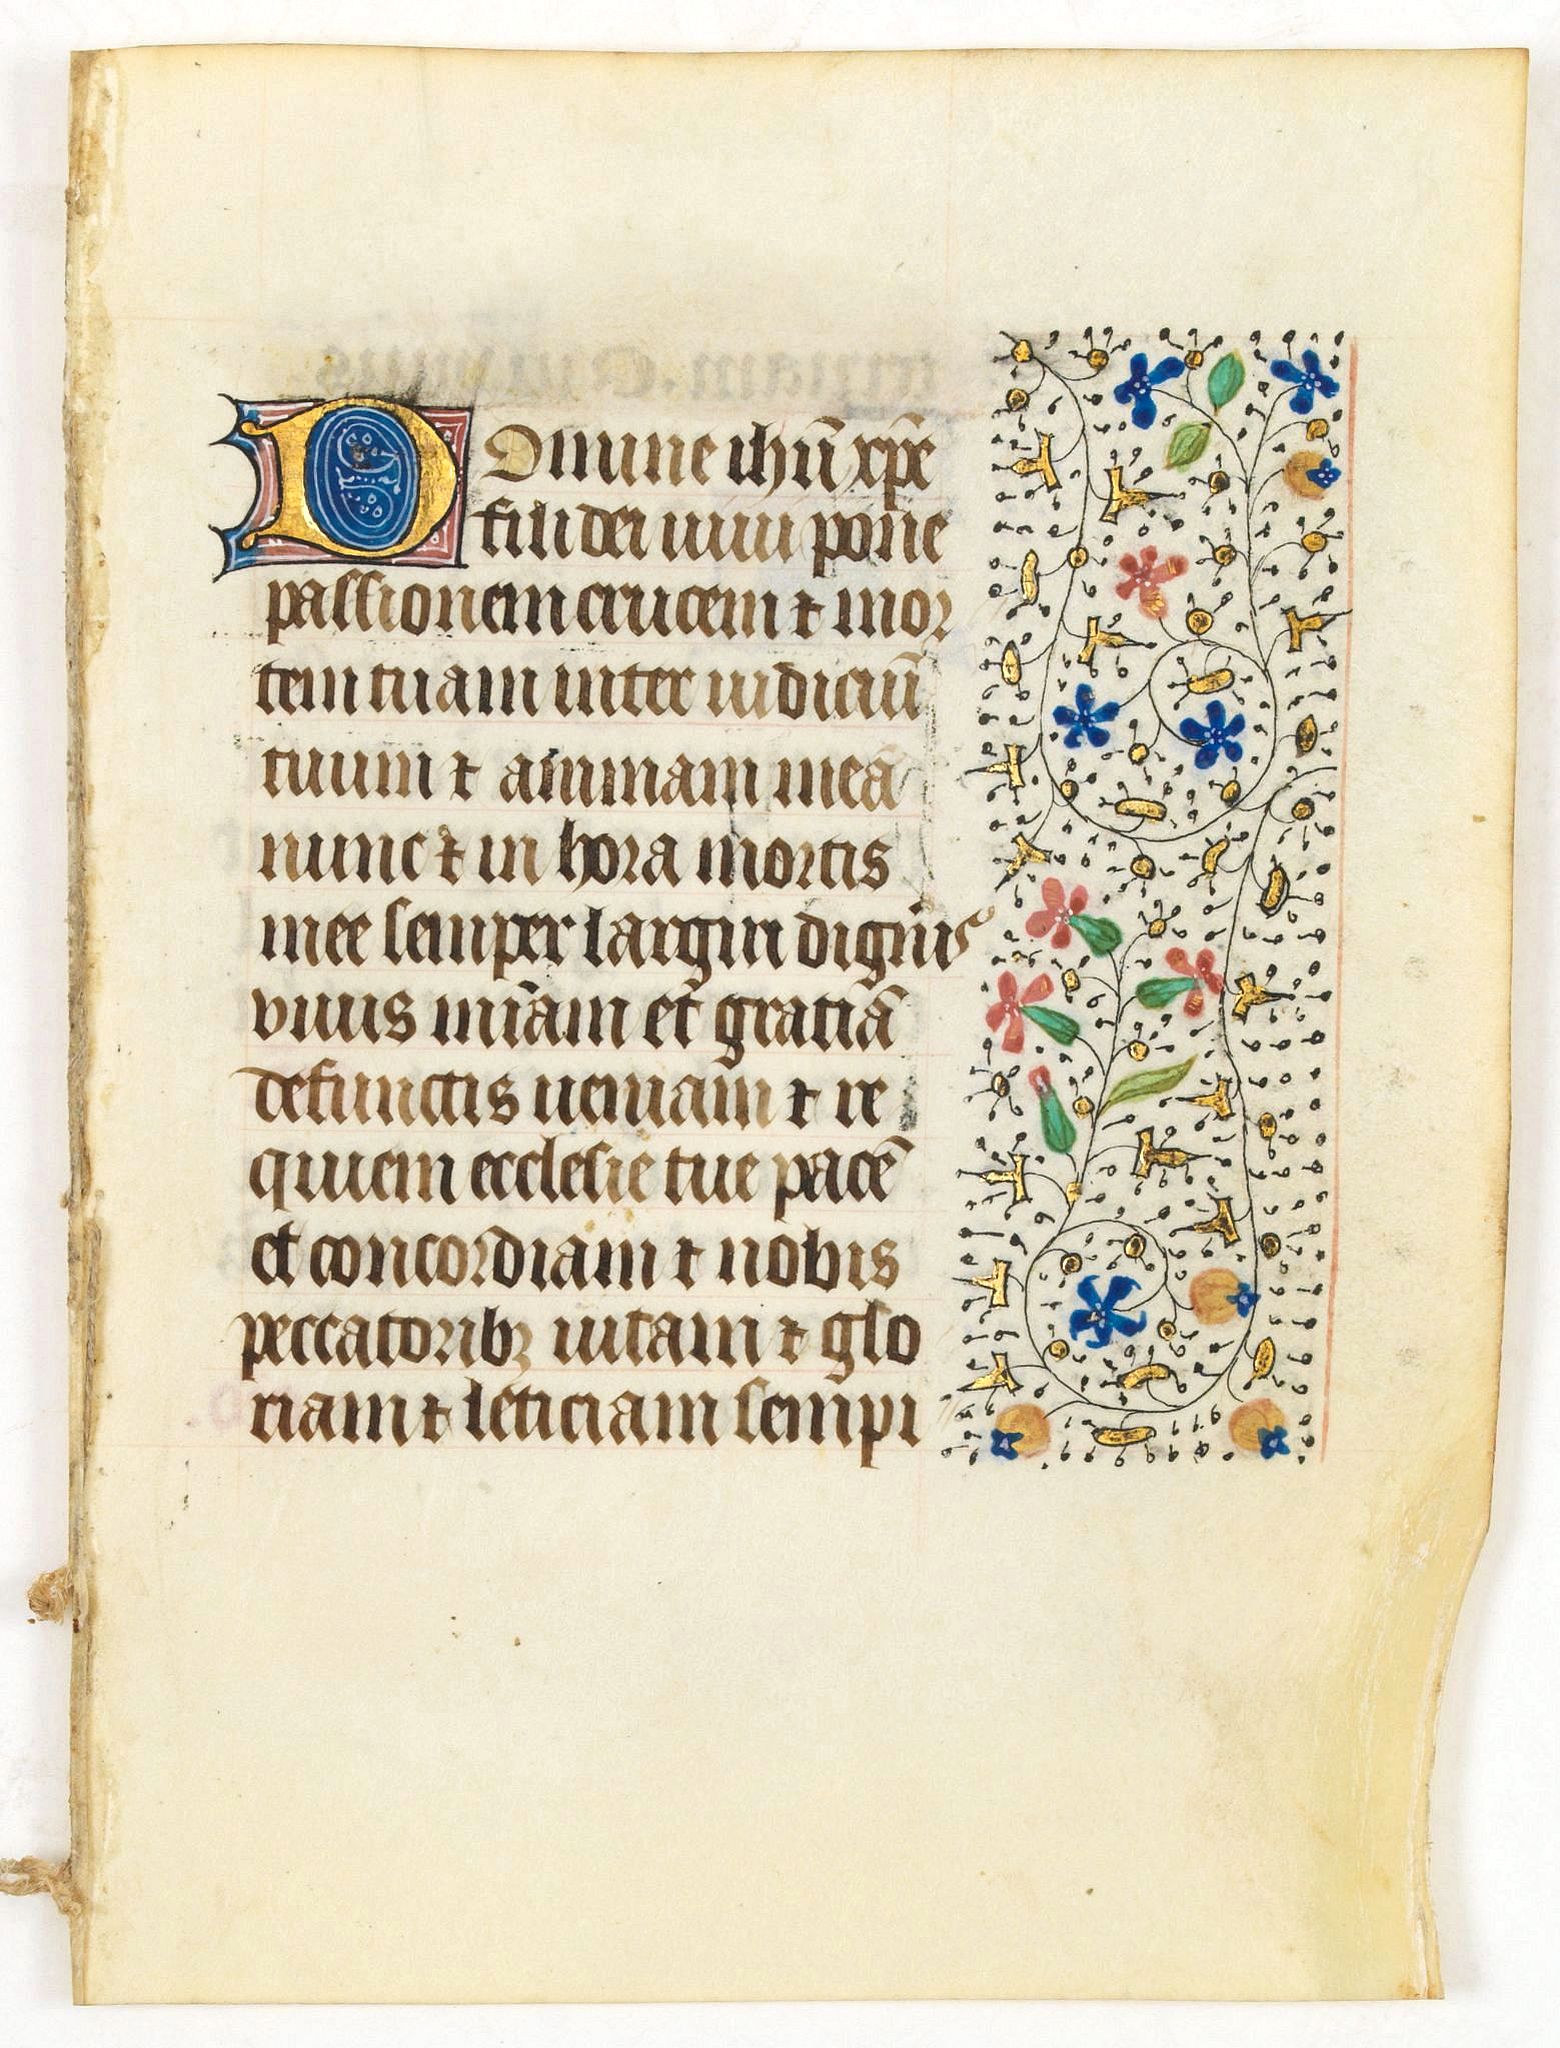 DOmine ihū xp̄e
fili dei uiui pone
passionem crucem ⁊ mor
tem tuam inter iudiciū
tuum ⁊ animam meā
nunc ⁊ in hora mortis
mee semper largiri digneris
viuis mīam et gratiā
defunctis ueniam ⁊ re
quiem ecclesie tue pacē
et concordiam ⁊ nobis
peccatoribꝫ uitam ⁊ glo
riam ⁊ leticiam sempi